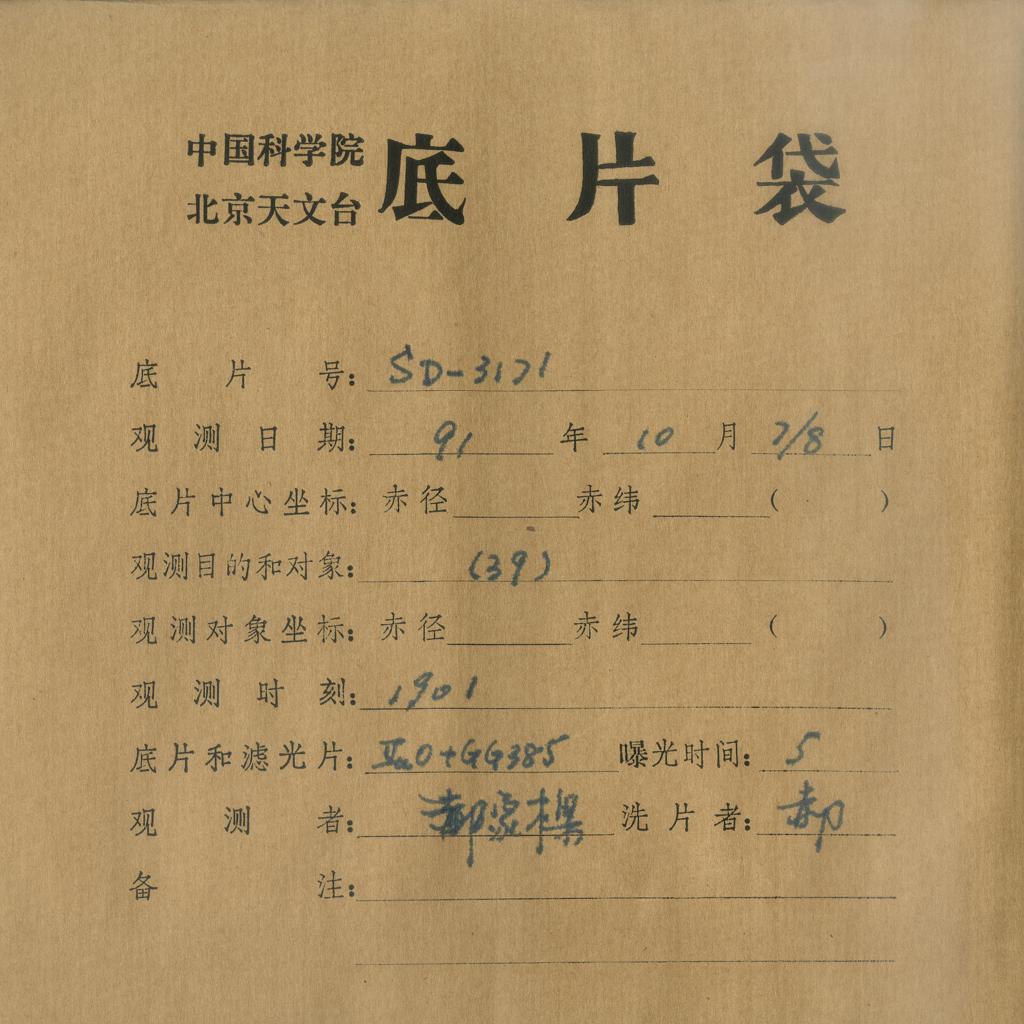 中国科学院
北京天文台
底片袋
底片号: SD-3171
观测日期: 91年10月7/8日
底片中心坐标: 赤径 赤纬 ( )
观测目的和对象: (39)
观测对象坐标: 赤径 赤纬 ( )
观测时刻: 1901
底片和滤光片: IIaO+GG385 曝光时间: 5
观测者: 郝象梁 洗片者: 郝
备注: